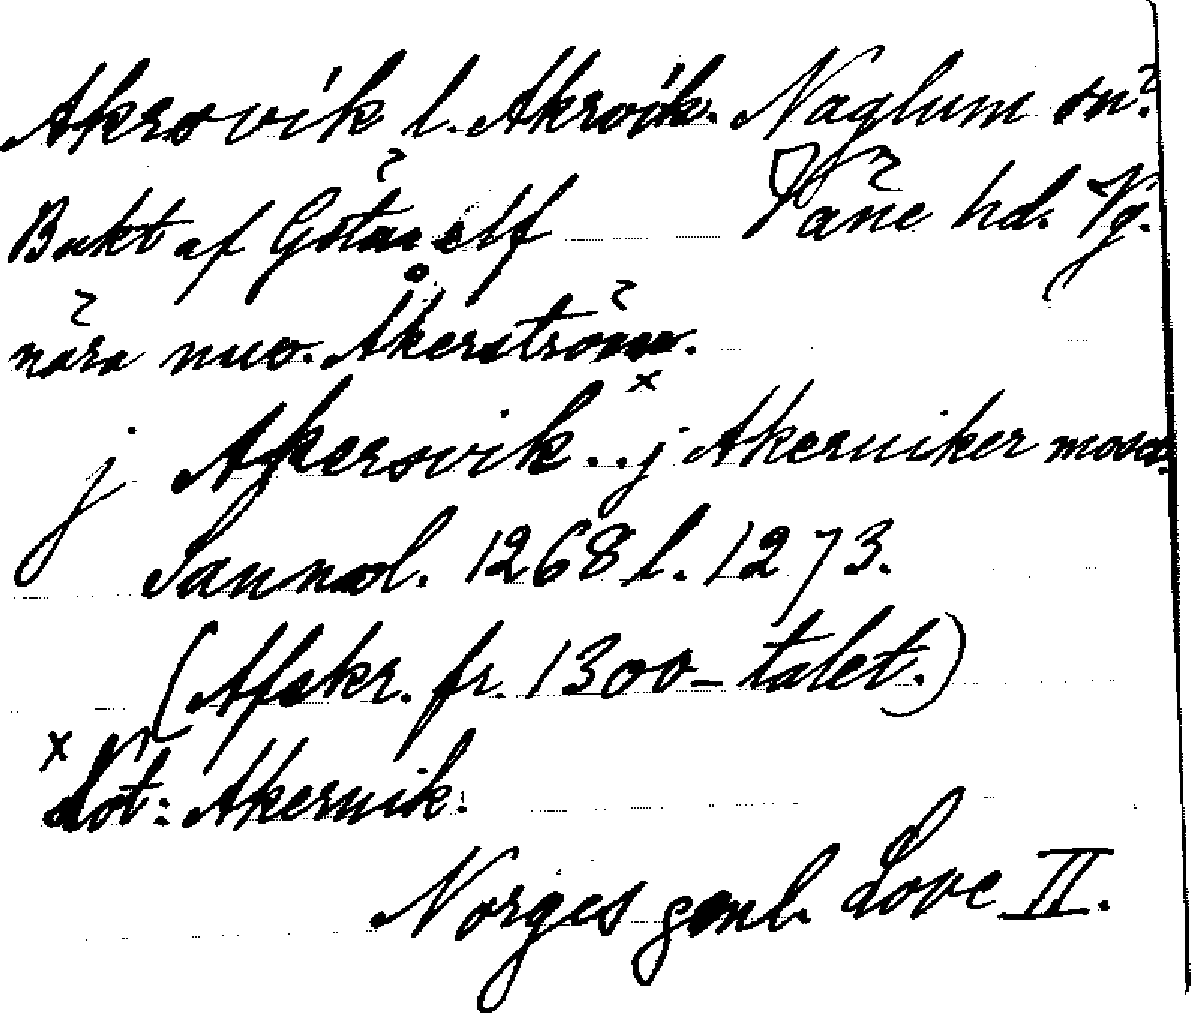 Akrsvík l. Akrvík. Naglum sn?
Bukt af Göta elf Väne hd. Vg.
nära nuv. Åkerström.
j Akersvik .. j Akeruiker mosa.
Sannol. 1268 l. 1273.
(Afskr. fr. 1300-talet.)
x Not: Akeruik.
Norges gml. Love II.